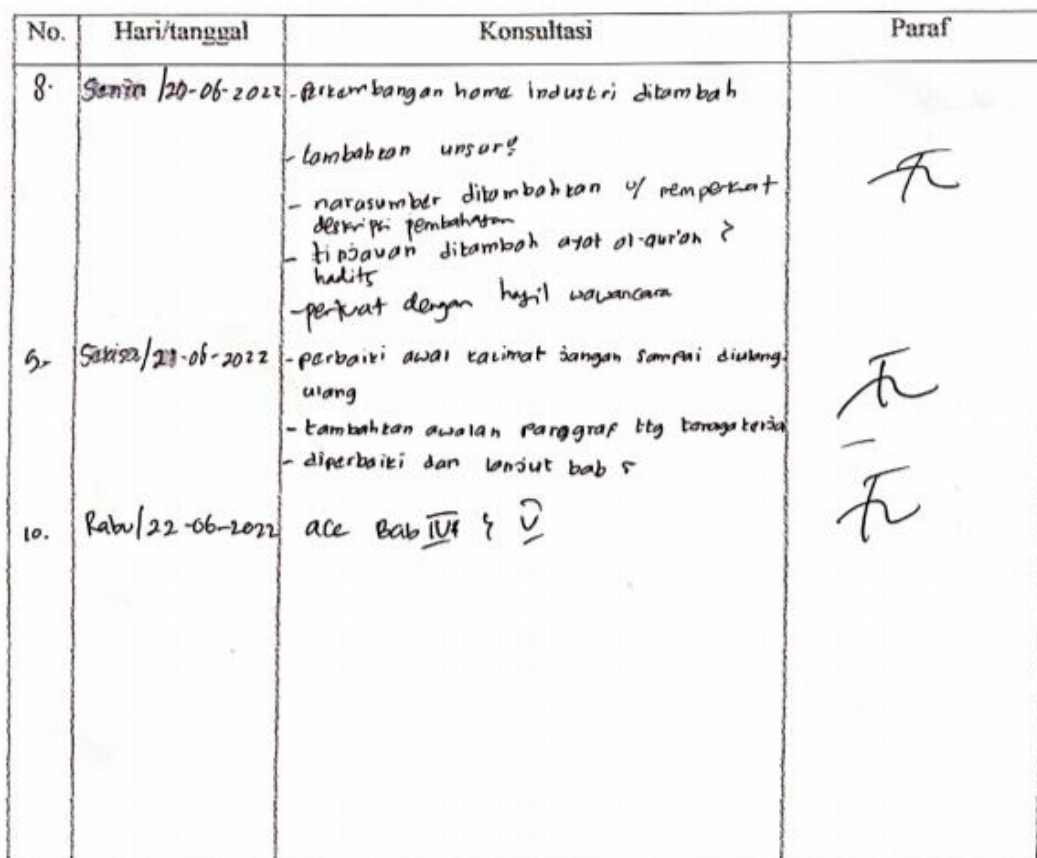 No. Hari/tanggal Konsultasi Paraf
8. Senin /20-06-2022 - Perkembangan home industri ditambah
- tambahkan unsur2
- narasumber ditambahkan u/ memperkuat
deskripsi pembahasan
- tinjauan ditambah ayat al-qur'an &
hadits
- perkuat dengan hasil wawancara
9. Selasa/21-06-2022 - perbaiki awal kalimat jangan sampai diulang-
ulang
- tambahkan awalan Paragraf ttg tenaga kerja
- diperbaiki dan lanjut bab 5
10. Rabu/22-06-2022 acc Bab IV & V